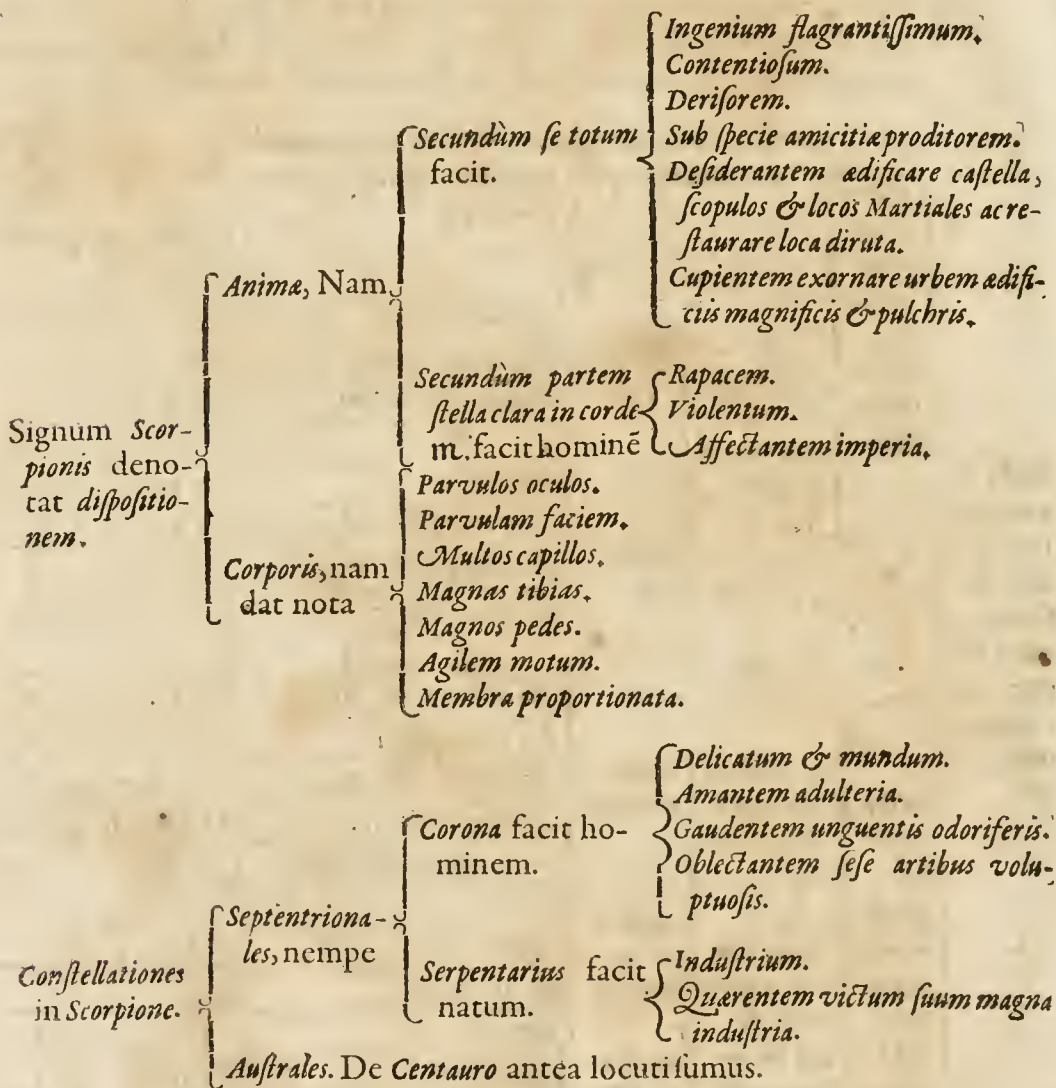 Signum Scor-
pionis deno-
tat dispositio-
nem.
Animæ, Nam
Secundùm se totum
facit.
Ingenium flagrantissimum.
Contentiosum.
Derisorem.
Sub specie amicitiæ proditorem.
Desiderantem ædificare castella,
scopulos & locos Martiales ac re-
staurare loca diruta.
Cupientem exornare urbem ædifi-
ciis magnificis & pulchris.
Secundùm partem
stella clara in corde
♏. facit hominē
Rapacem.
Violentum.
Affectantem imperia.
Corporis, nam
dat nota
Parvulos oculos.
Parvulam faciem.
Multos capillos.
Magnas tibias.
Magnos pedes.
Agilem motum.
Membra proportionata.
Constellationes
in Scorpione.
Septentriona-
les, nempe
Corona facit ho-
minem.
Delicatum & mundum.
Amantem adulteria.
Gaudentem unguentis odoriferis.
Oblectantem sese artibus volu-
ptuosis.
Serpentarius facit
natum.
Industrium.
Quærentem victum suum magna
industria.
Australes. De Centauro antea locuti sumus.